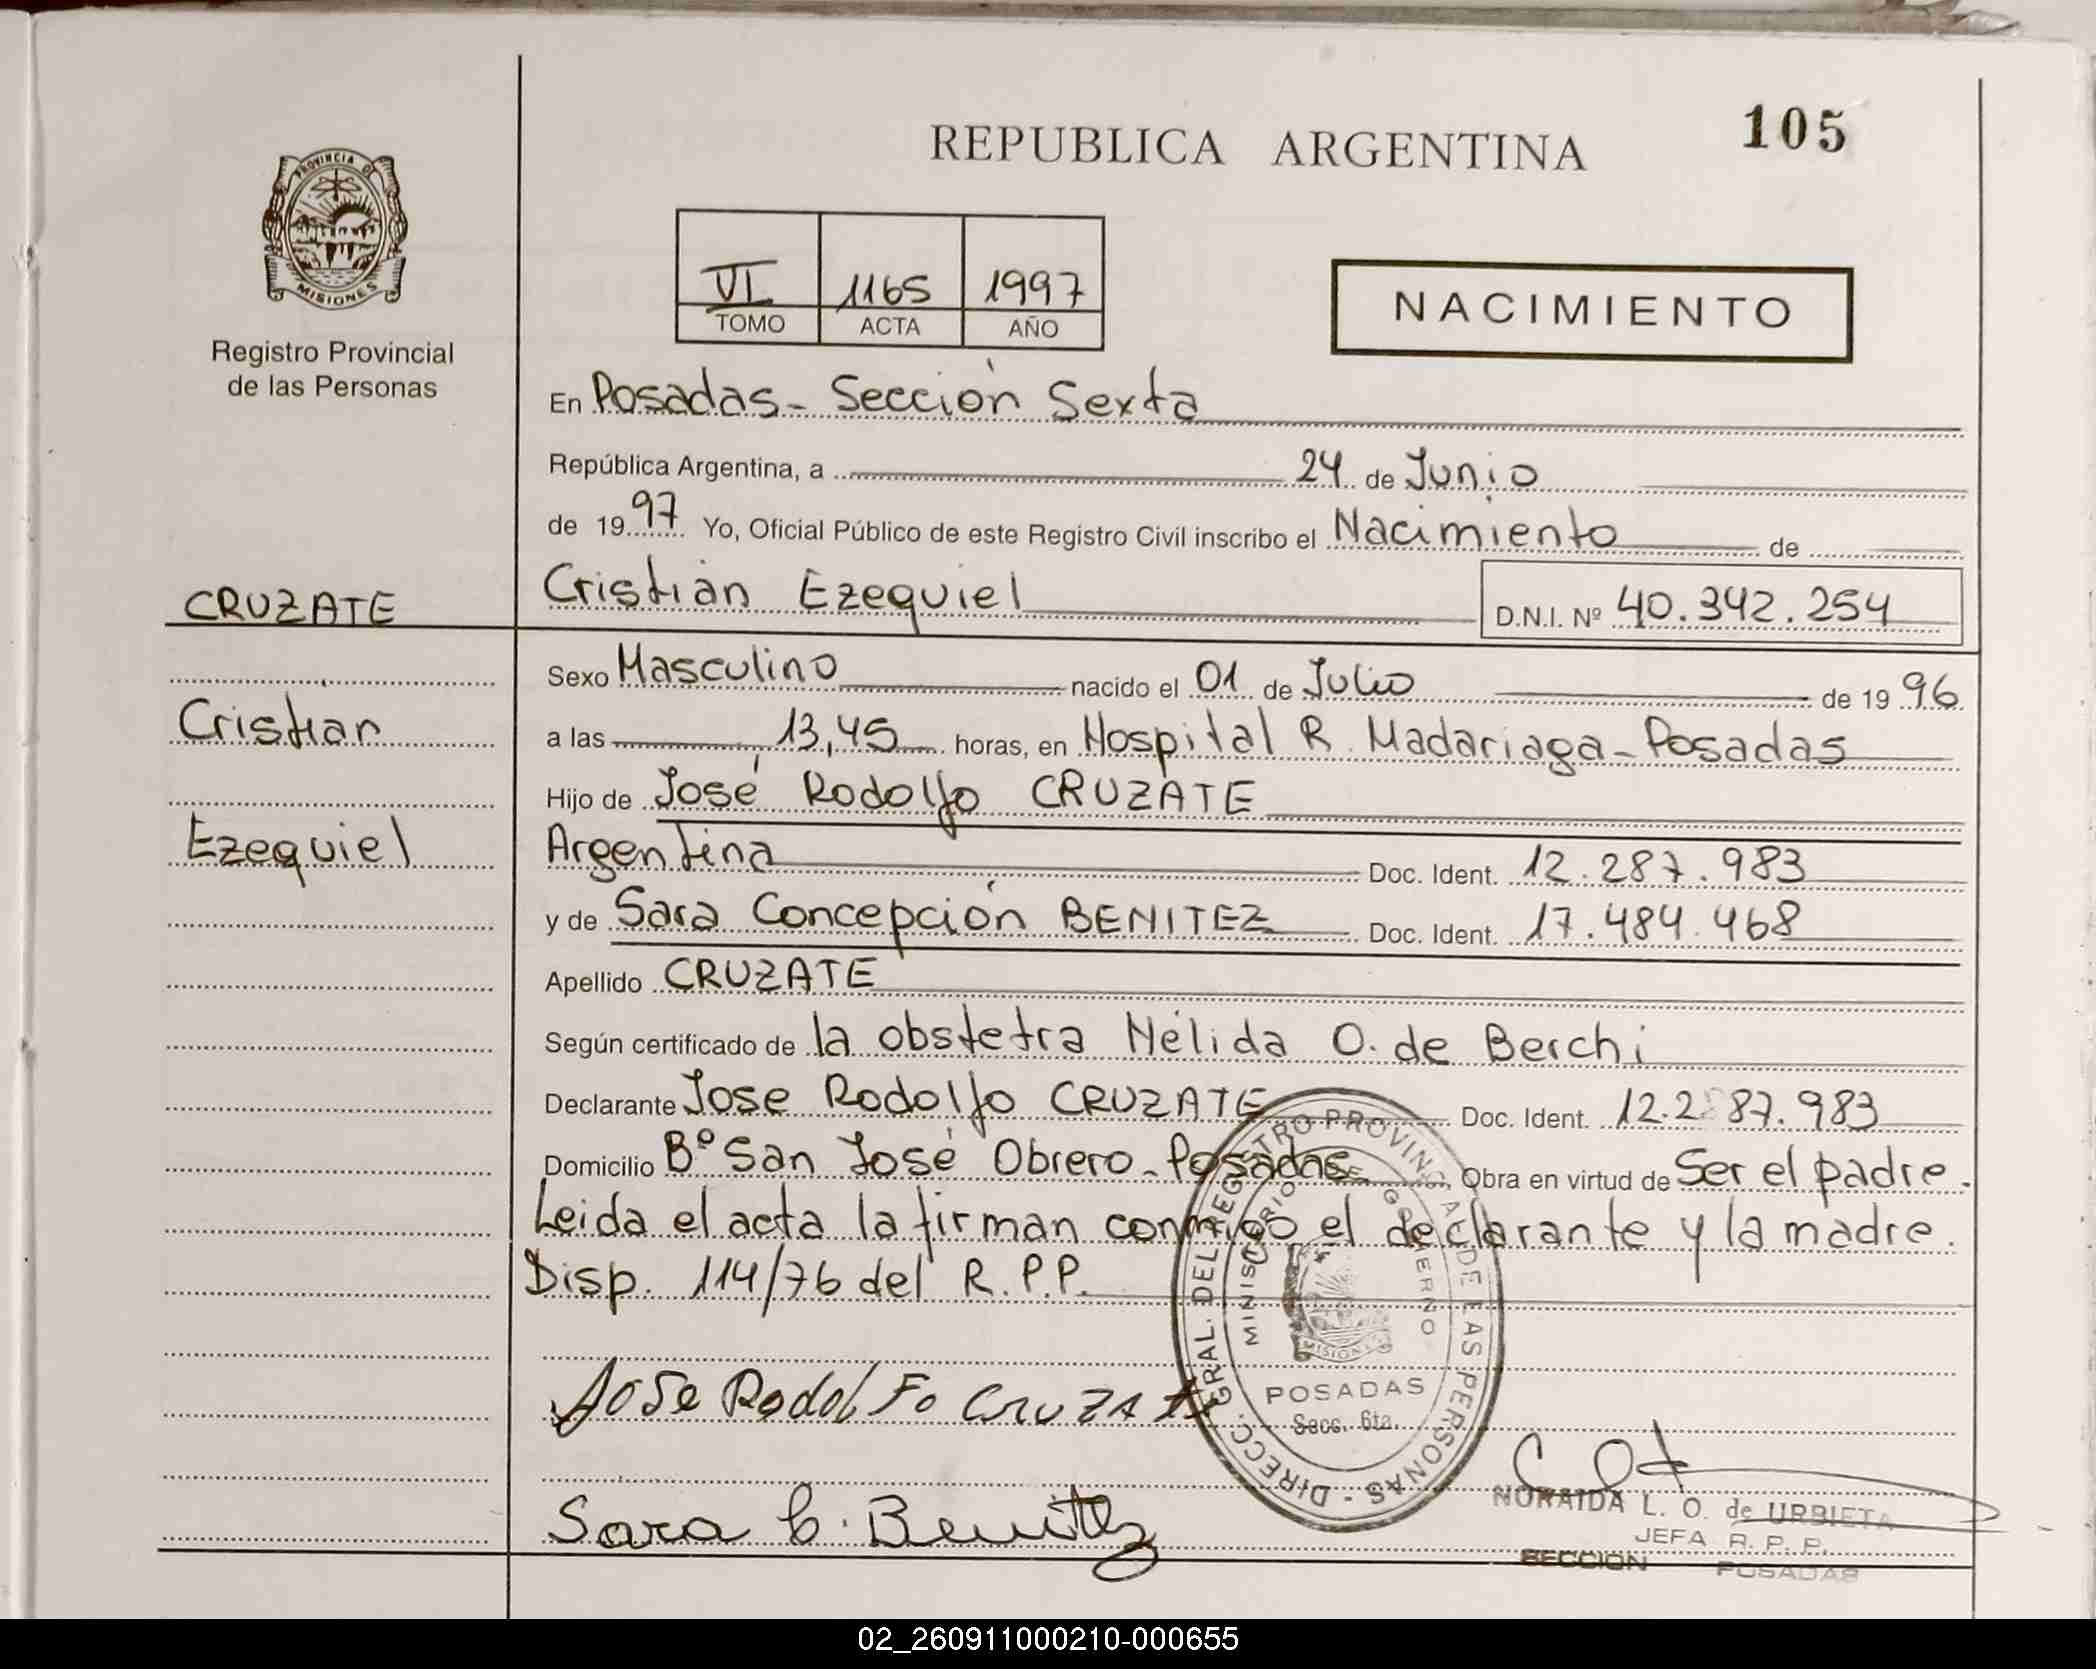 REPUBLICA ARGENTINA
105
PROVINCIA DE
MISIONES
Registro Provincial
de las Personas
VI 1165 1997
TOMO ACTA AÑO
NACIMIENTO
En Posadas - Sección Sexta
República Argentina, a 24 de Junio
de 1997 Yo, Oficial Público de este Registro Civil inscribo el Nacimiento de
CRUZATE
Cristian Ezequiel D.N.I. Nº 40.342.254
Sexo Masculino nacido el 01 de Julio de 1996
Cristian
a las 13,45 horas, en Hospital R. Madariaga - Posadas
Hijo de José Rodolfo CRUZATE
Ezequiel
Argentina Doc. Ident. 12.287.983
y de Sara Concepción BENITEZ Doc. Ident. 17.484.468
Apellido CRUZATE
Según certificado de la obstetra Nélida O. de Berchi
Declarante Jose Rodolfo CRUZATE Doc. Ident. 12.287.983
Domicilio Bº San José Obrero - Posadas Obra en virtud de Ser el padre.
Leida el acta la firman conmigo el declarante y la madre.
Disp. 114/76 del R.P.P.
DIRECC. GRAL. DEL REGISTRO PROVINCIAL DE LAS PERSONAS -
MINISTERIO DE GOBIERNO
MISIONES
POSADAS
Secc. 6ta.
Jose Rodolfo Cruzate
Sara C. Benitez
NORAIDA L. O. de URBIETA
JEFA R. P. P.
SECCION POSADAS
02_260911000210-000655